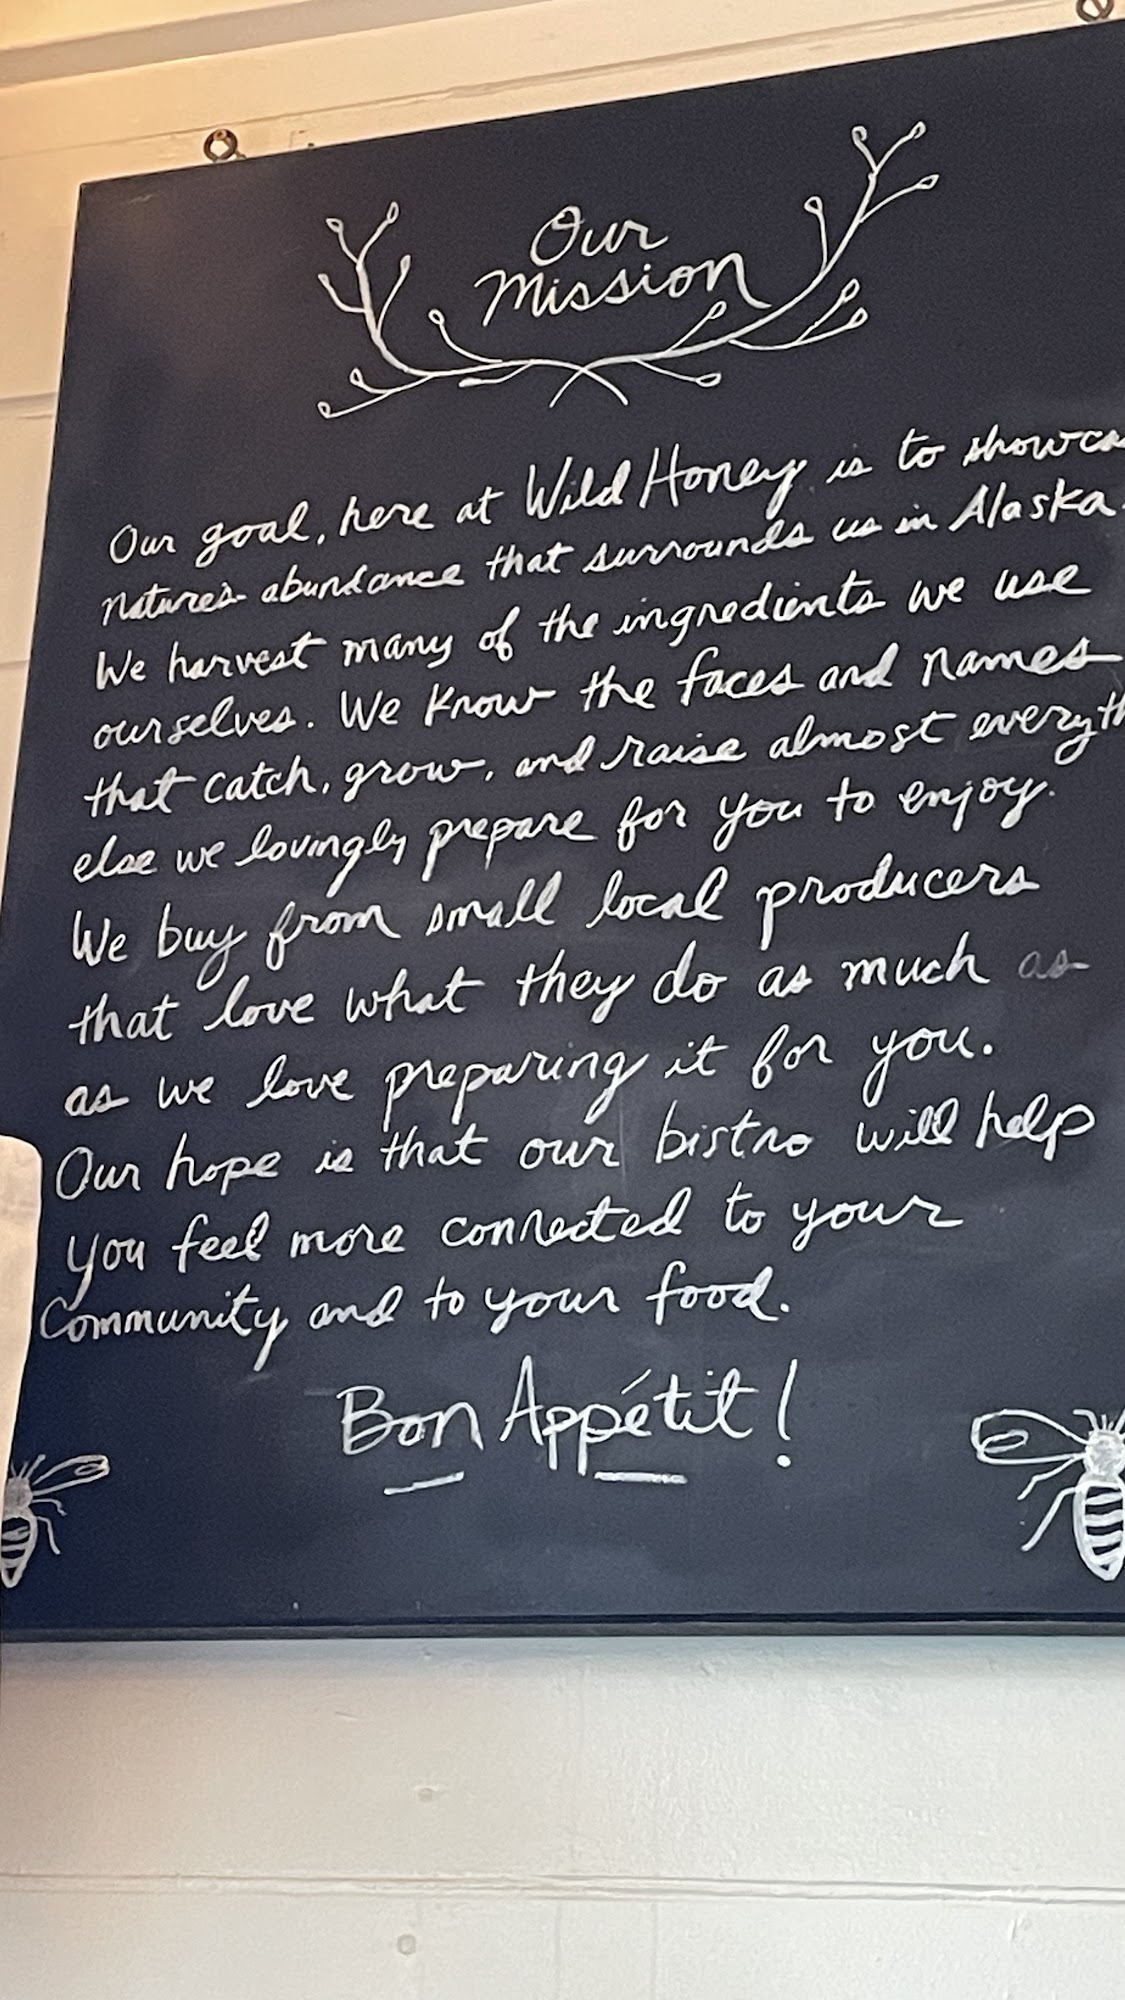 Our
Mission
Our goal, here at Wild Honey is to showca
nature's abundance that surrounds us in Alaska.
We harvest many of the ingredients we use
ourselves. We know the faces and names
that catch, grow, and raise almost everyth
else we lovingly prepare for you to enjoy.
We buy from small local producers
that love what they do as much as
as we love preparing it for you.
Our hope is that our bistro will help
you feel more connected to your
Community and to your food.
Bon Appétit!